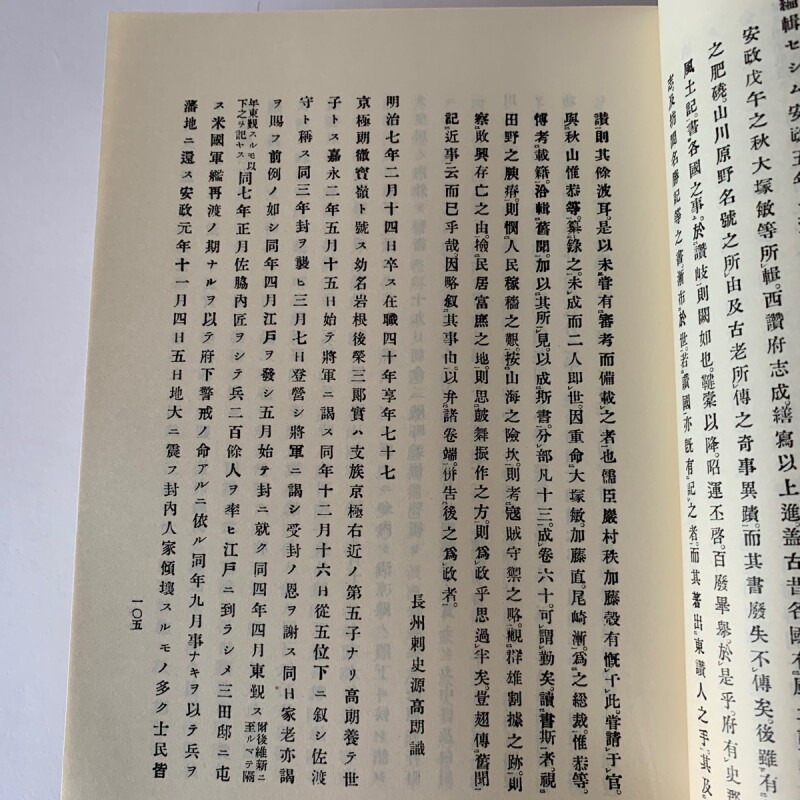 編輯セシム安政五年
安政戊午之秋大塚敏等所輯西讃府志成繕寫以上進蓋古昔各國
之肥磽山川原野名號之所由及古老所傳之奇事異蹟而其書廢失不傳矣後雖有
風土記書各國之事於讃岐則闕如也鞬櫜以降昭運丕啓百廢畢擧於是乎府有史
於世若讃國亦既有記之者而其著出東讃人之手其及
讃則其餘波耳是以未甞有審考而備載之者也儒臣巖村秩加藤殼有慨于此甞請于官
與秋山惟恭等纂錄之未成而二人即世因重命大塚敏加藤直尾崎漸爲之総裁惟恭等
博考載籍洽輯舊聞加以其所見以成斯書分部凡十三成卷六十可謂勤矣讀書斯者視
田野之腴瘠則憫人稼穡之艱按山海之險坎則考寇賊守禦之略觀群雄割據之跡則
察敗興存亡之由撿民居富庶之地則思鼓舞振作之方則爲政乎思過半矣豈翅傳舊聞
記近事云而已乎哉因略叙其事由以弁諸卷端併告後之爲政者
長州刺史源高朗識
明治七年二月十四日卒ス在職四十年享年七十七
京極朗徹寶嶺ト號ス幼名岩根後榮三郞實ハ支族京極右近ノ第五子ナリ高朗養テ世
子トス嘉永二年五月十五日始テ將軍ニ謁ス同年十二月十六日從五位下ニ叙シ佐渡
守ト稱ス同三年封ヲ襲ヒ三月七日登營シ將軍ニ謁シ受封ノ恩ヲ謝ス同日家老亦謁
ヲ賜フ前例ノ如シ同年四月江戸ヲ發シ五月始テ封ニ就ク同四年四月東覲ス爾後維新ニ至ルマテ隔
年東覲スルモ以下之ヲ記ヤス同七年正月佐脇內匠ヲシテ兵二百餘人ヲ率ヒ江戸ニ到ラシメ三田邸ニ屯
ス米國軍艦再渡ノ期ナルヲ以テ府下警戒ノ命アルニ依ル同年九月事ナキヲ以テ兵ヲ
藩地ニ還ス安政元年十一月四日五日地大ニ震フ封內人家傾壞スルモノ多ク士民皆
一〇五